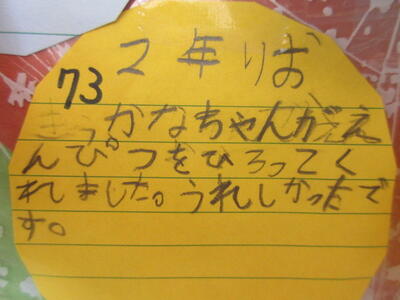 2年りお
73
かなちゃんがえ
んぴつをひろってく
れました。うれしかったで
す。